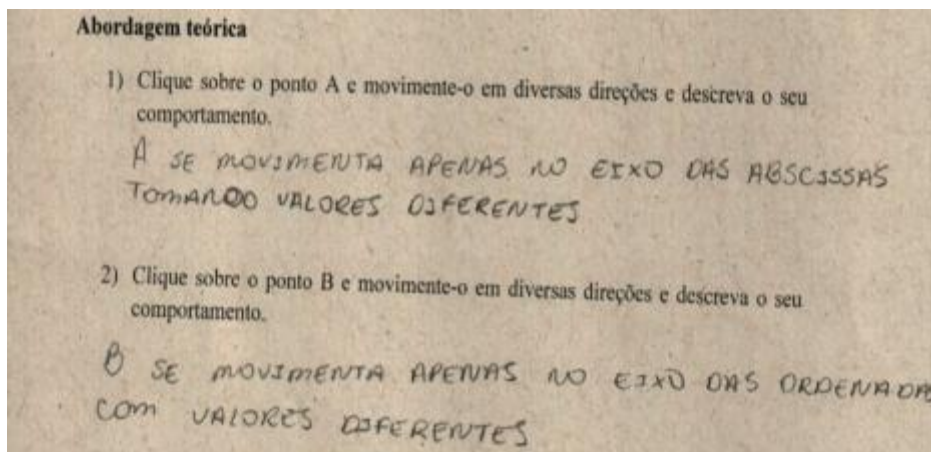 Abordagem teórica
1) Clique sobre o ponto A e movimente-o em diversas direções e descreva o seu
comportamento.
A SE MOVIMENTA APENAS NO EIXO DAS ABSCISSAS
TOMANDO VALORES DIFERENTES
2) Clique sobre o ponto B e movimente-o em diversas direções e descreva o seu
comportamento.
B SE MOVIMENTA APENAS NO EIXO DAS ORDENADA
COM VALORES DIFERENTES